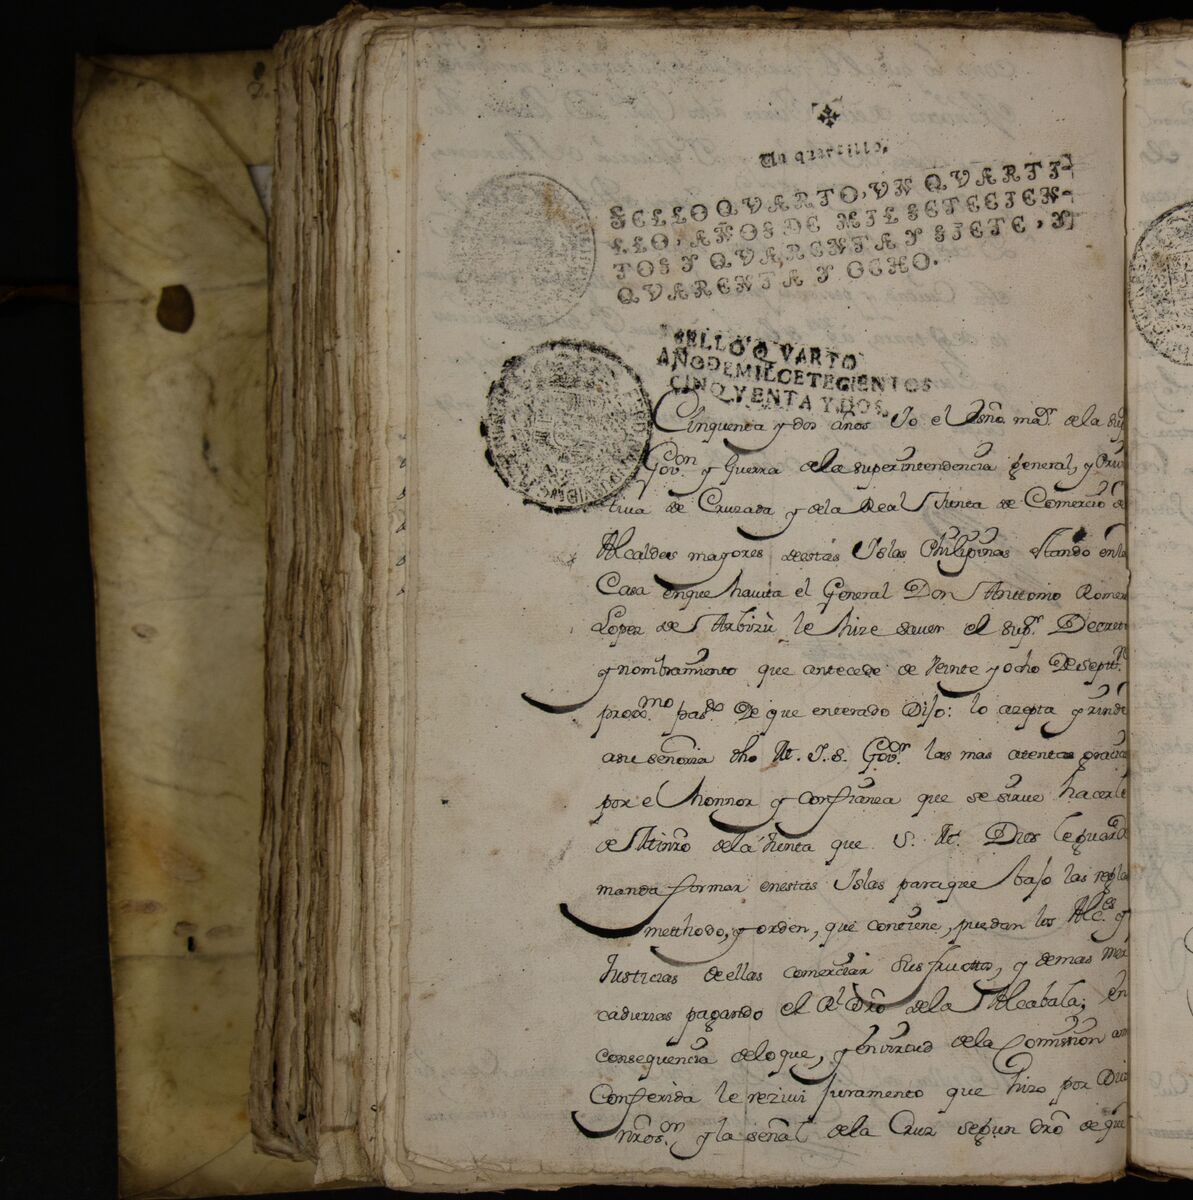 Un quartillo.
SELLO QVARTO, VN QVARTI-
LLO, AÑOS DE MIL SETECIEN-
TOS Y QVARENTA Y SIETE, Y
QVARENTA Y OCHO.
SELLO QVARTO
AÑO DE MIL CETEGIENTOS
CINQVENTA Y DOS.
Cinquenta y dos años Yo el Essno. mar. de la sup
Govon y Guerra dela superintendencia general, y
tiva de Cruzada y dela Real Junta de Comercio de
Alcaldes mayores de estas Yslas Philipinas estando en la
Casa enque havita el General Don Anttonio Romer
Lopez de Arbizù le hize sauer el supr. Decret
y nombramiento que antecede de Veinte y ocho De Septtre
proxmo. pasdo. De que enterado Dijo: lo azepta y rinde
a su señoria dho M. Y. S. Govor. las mas atentas gracia
por el honnor y confianza que se sirue hacerle
de Minro dela Junta que S. M. Dios le guarde
manda formar enestas Yslas paraque bajo las regla
metthodo, y orden, que conviene, puedan los Alces. y
Justicias de ellas comerciar sus fruttos, y demas mer
cadurias pagando el Rl. Dro dela Alcabala; en
consequencia delo que, y en virtud dela Comission am
Conferida le reziui juramento que hizo por Dios
nrosor. y la señal dela Cruz segun dro de que